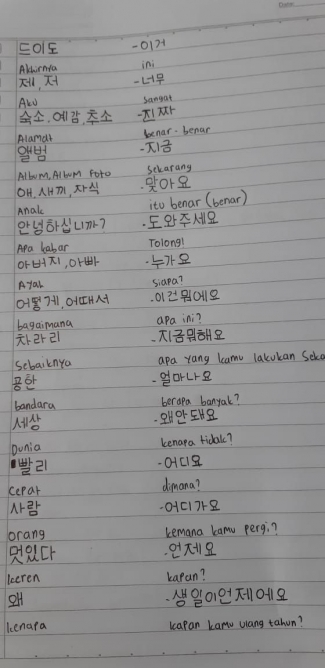 드이도 -이거
Akhirnya ini
제, 저 -너무
Aku sangat
숙소, 예감, 추소 -진짜
Alamat benar-benar
앨범 -지금
Album, Album foto Sekarang
애, 새끼, 자식 -맞아요
Anak itu benar (benar)
안녕하십니까? -도와주세요
Apa kabar Tolong!
아버지, 아빠 -누가요
Ayah siapa?
어떻게, 어때서 -이건뭐에요
bagaimana apa ini?
차라리 -지금뭐해요
Sebaiknya apa yang kamu lakukan Seka
공한 -얼마나요
bandara berapa banyak?
세상 -왜안돼요
Dunia kenapa tidak?
빨리 -어디요
Cepat dimana?
사람 -어디가요
Orang kemana kamu pergi?
멋있다 -언제요
keren kapan?
왜 -생일이언제에요
kenapa kapan kamu ulang tahun?